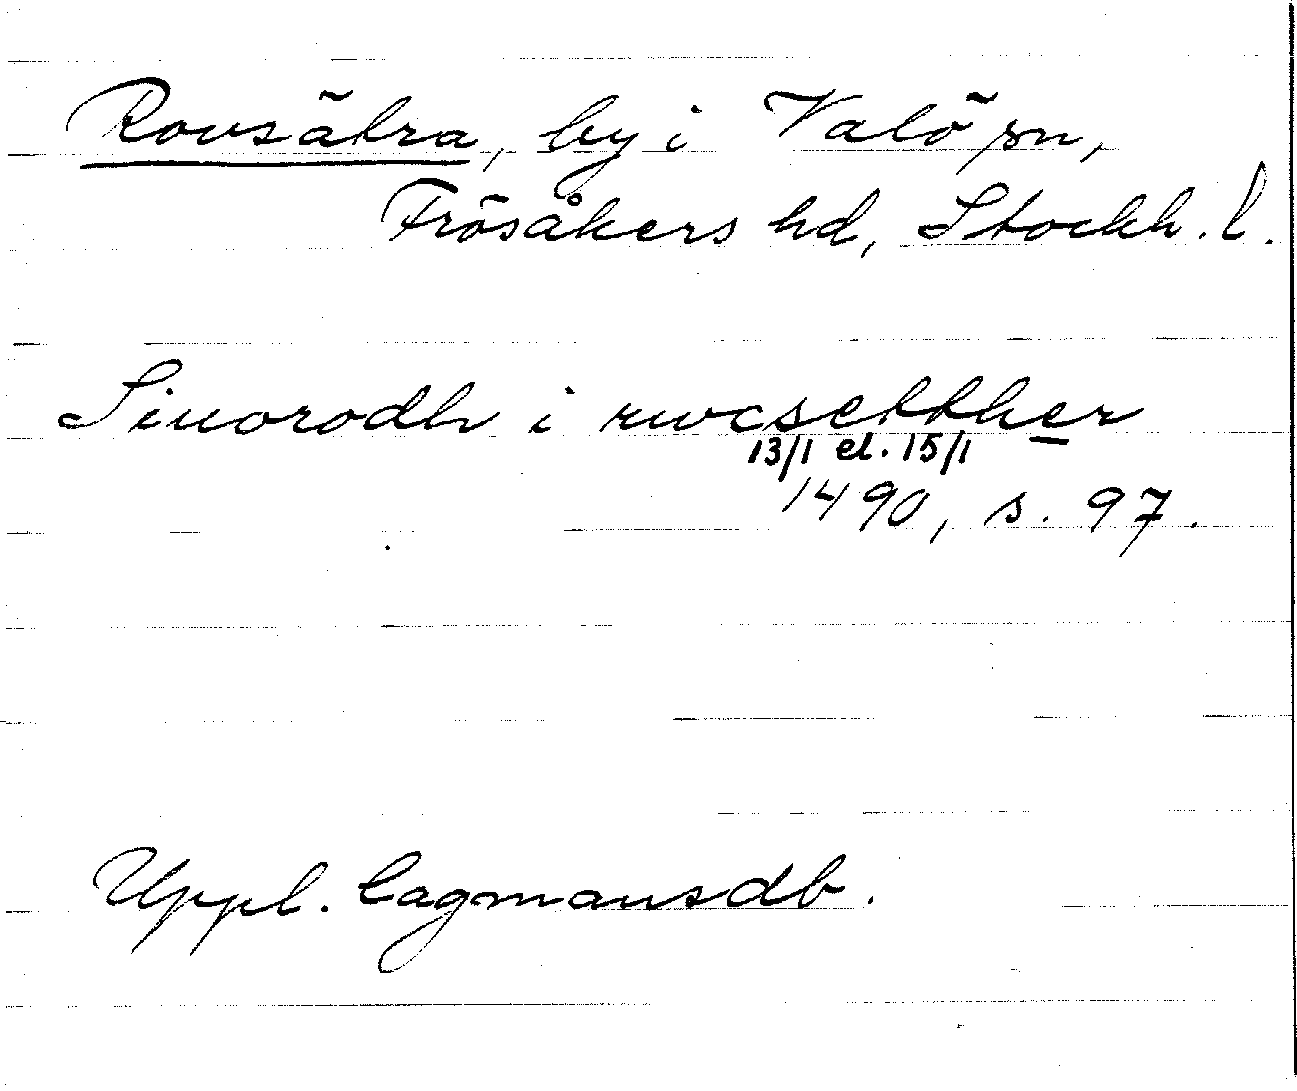 Rovsätra, by i Valö sn,
Frösåkers hd, Stockh. l.
Siuorodh i rwcsetther
13/1 el. 15/1
1490, s. 97.
Uppl. lagmansdb.